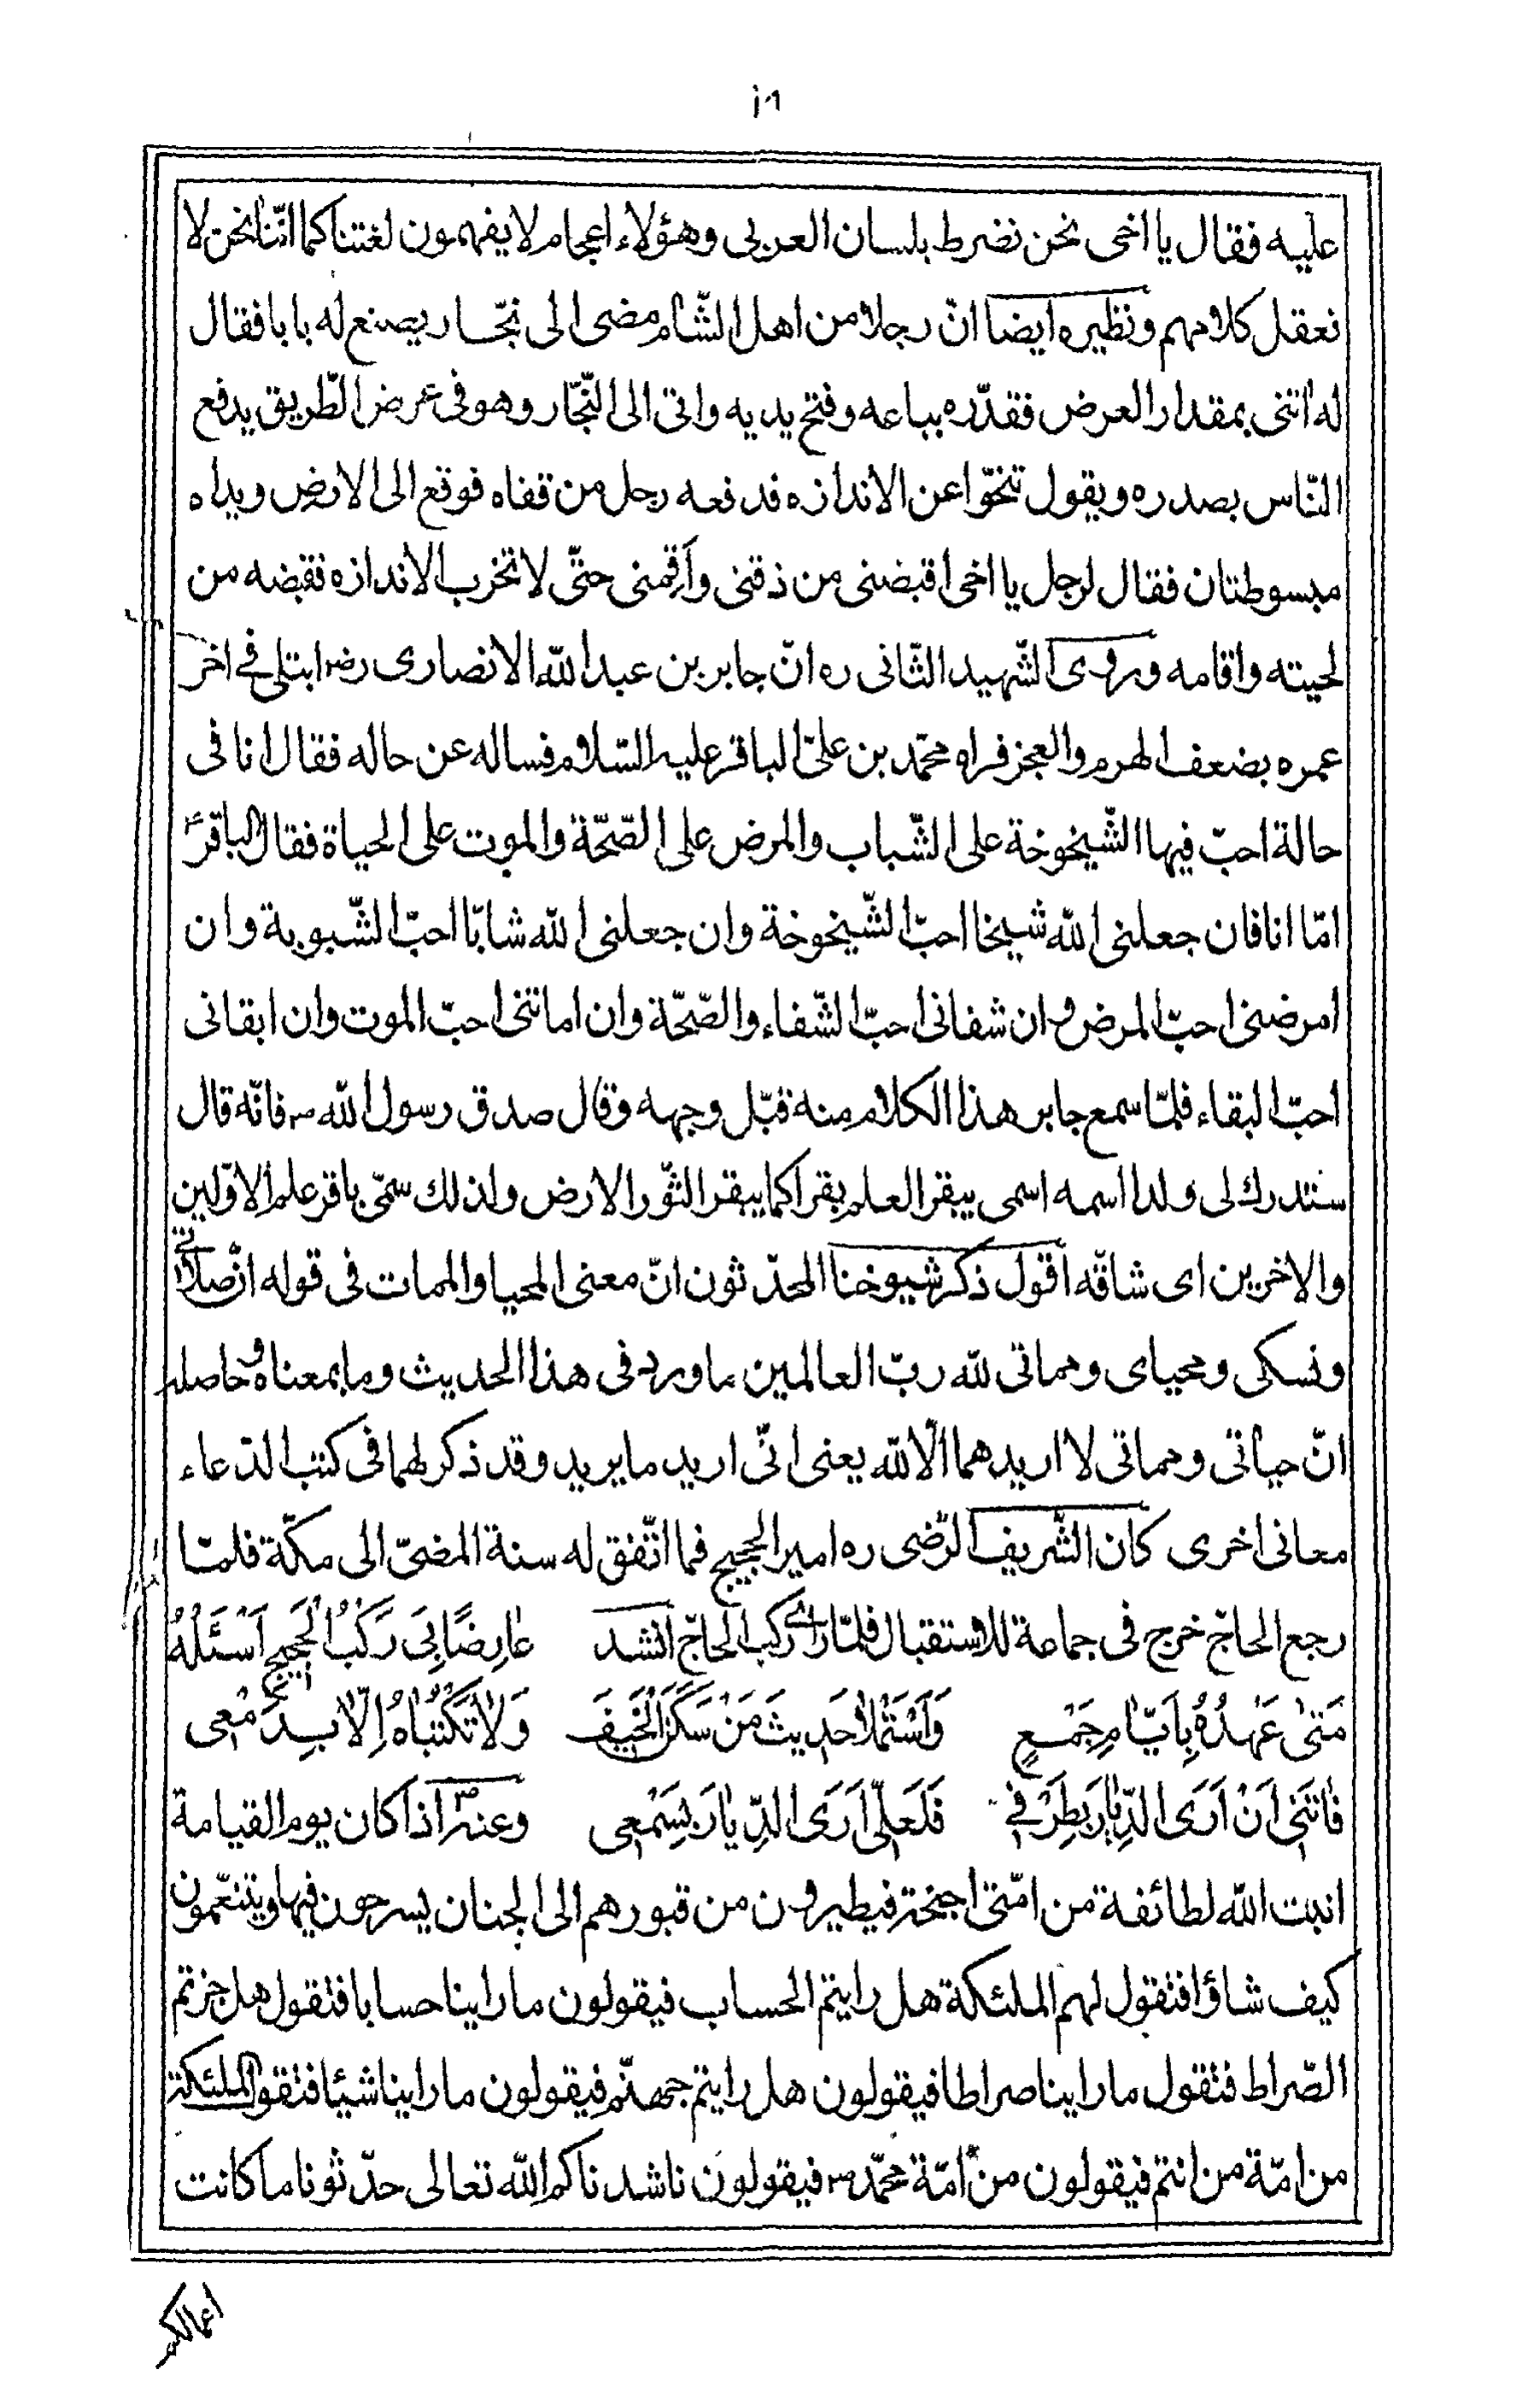 عليه فقال يا اخى نحن نضرط بلسان العربى وهؤلاء اعجام لا يفهمون لغتنا كما انّنا نحن لا
نعقل كلامهم ونظيره ايضا انّ رجلا من اهل الشّام مضى الى نجّار يصنع له بابا فقال
له ائتنى بمقدار العرض فقدّره بباعه وفتح يديه واتى الى النّجّار وهو فى عرض الطّريق يدفع
النّاس بصدره ويقول تنحّوا عن الاندازه فدفعه رجل من قفاه فوقع الى الارض ويداه
مبسوطتان فقال لرجل يا اخى اقبضنى من ذقنى وأقمنى حتّى لا تخرب الاندازه فقبضه من
لحيته واقامه وروى الشّهيد الثّانى ره انّ جابر بن عبد اللّه الانصارى رضه ابتلى فى اخر
عمره بضعف الهرم والعجز فراه محمّد بن علىّ الباقر عليه السّلام فساله عن حاله فقال انا فى
حالة احبّ فيها الشّيخوخة على الشّباب والمرض على الصّحّة والموت على الحياة فقال الباقر ع
امّا انا فان جعلنى اللّه شيخا احبّ الشّيخوخة وان جعلنى اللّه شابّا احبّ الشّبوبة وان
امرضنى احبّ المرض وان شفانى احبّ الشّفاء والصّحّة وان اماتنى احبّ الموت وان ابقانى
احبّ البقاء فلمّا سمع جابر هذا الكلام منه قبّل وجهه وقال صدق رسول اللّه ص فانّه قال
ستدرك لى ولدا اسمه اسمى يبقر العلم بقرا كما يبقر الثّور الارض ولذلك سمّى باقر علم الاوّلين
والاخرين اى شاقّه اقول ذكر شيوخنا المحدّثون انّ معنى المحيا والممات فى قوله انّ صلاتى
ونسكى ومحياى ومماتى للّه ربّ العالمين ما ورد فى هذا الحديث وما بمعناه وحاصله
انّ حياتى ومماتى لا اريدهما الّا للّه يعنى انّى اريد ما يريد وقد ذكر لهما فى كتب الدّعاء
معانى اخرى كان الشّريف الرّضى ره امير الحجيج فما اتّفق له سنة المضىّ الى مكّة فلمّا
رجع الحاجّ خرج فى جماعة للاستقبال فلمّا راى ركب الحاجّ انشد عَارِضًا بِى رَكْبُ الْحَجِيجِ اَسْئَلُهُ
مَتىٰ عَهْدُهُ بِاَيّٰامِ جَمْعٍ وَاَسْتَمْلاٰ حَدِيثَ مَنْ سَكَنَ الْخَيْفَ وَلاٰ تَكْتُبٰاهُ اِلّاٰ بِدَمْعِى
فٰاتَنِى اَنْ اَرَى الدِّيٰارَ بِطَرْفِى فَلَعَلِّى اَرَى الدِّيٰارَ بِسَمْعِى وعنه ص اذا كان يوم القيامة
انبت اللّه لطائفة من امّتى اجنحة فيطيرون من قبورهم الى الجنان يسرحون فيها ويتنعّمون
كيف شاؤا فتقول لهم الملئكة هل رايتم الحساب فيقولون ما راينا حسابا فتقول هل جزتم
الصّراط فتقول ما راينا صراطا فيقولون هل رايتم جهنّم فيقولون ما راينا شيئا فتقول الملئكة
من امّة من انتم فيقولون من امّة محمّد ص فيقولون ناشدناكم اللّه تعالى حدّثونا ما كانت
اعمالكم